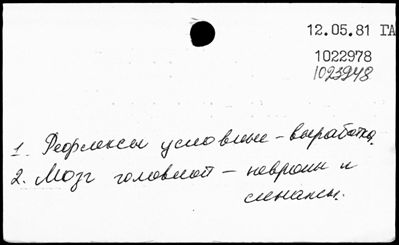 12.05.81 ГА
1022978
1023948
1. Рефлексы условные – выработка.
2. Мозг головной – невроны и
синапсы.